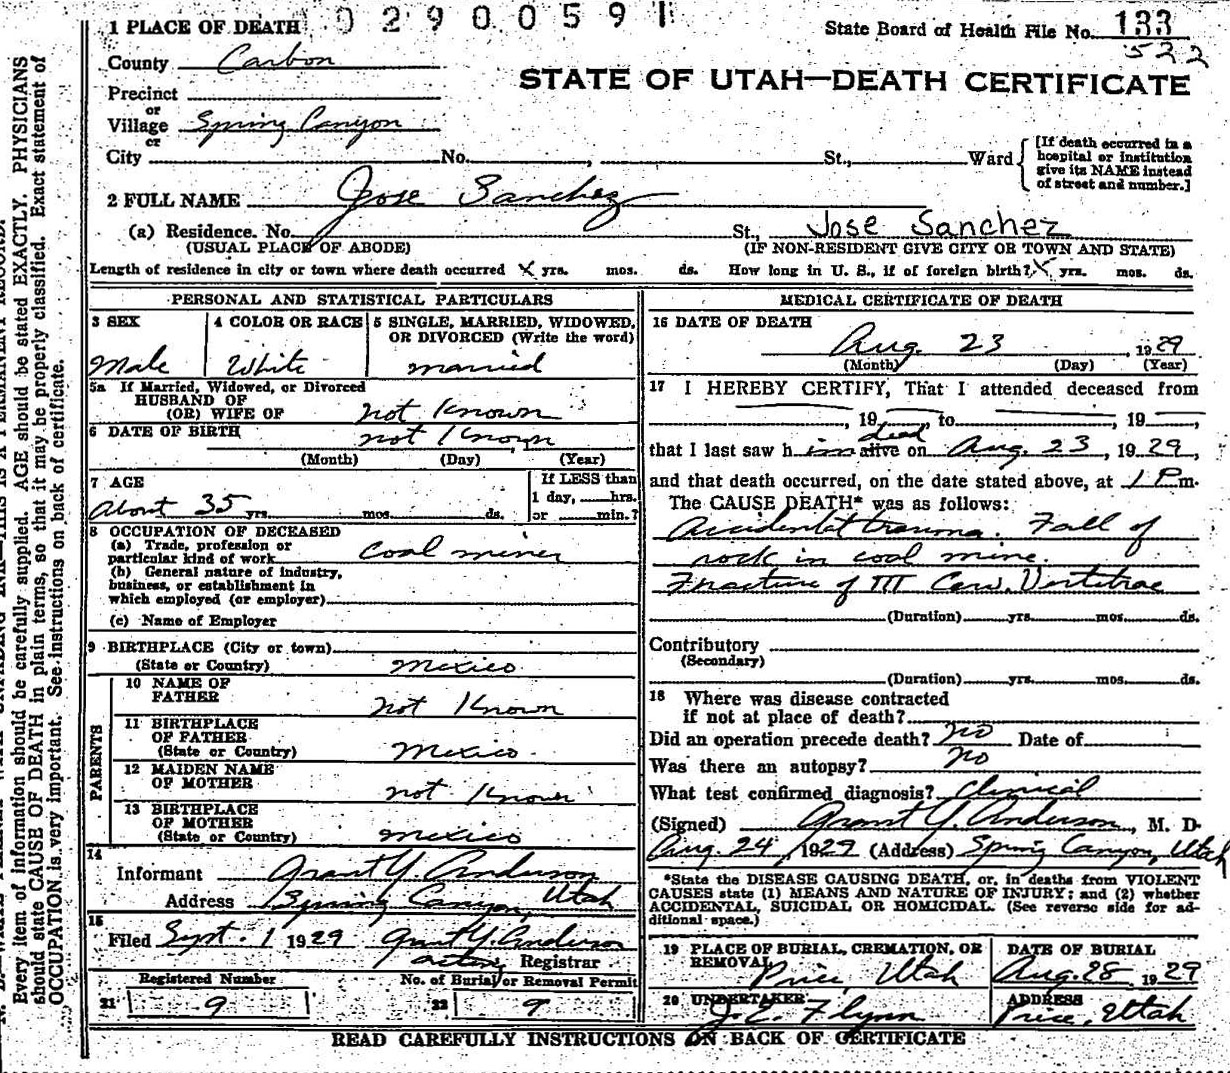 02900591
1 PLACE OF DEATH
State Board of Health File No. 133
522
County Carbon
STATE OF UTAH—DEATH CERTIFICATE
Precinct
or
Village Spring Canyon
or
City No. , St., Ward
[If death occurred in a hospital or institution give its NAME instead of street and number.]
2 FULL NAME Jose Sanchez
(a) Residence. No. St., Jose Sanchez
(USUAL PLACE OF ABODE) (IF NON-RESIDENT GIVE CITY OR TOWN AND STATE)
Length of residence in city or town where death occurred X yrs. mos. ds. How long in U. S., if of foreign birth? X yrs. mos. ds.
PERSONAL AND STATISTICAL PARTICULARS
3 SEX
Male
4 COLOR OR RACE
White
5 SINGLE, MARRIED, WIDOWED, OR DIVORCED (Write the word)
married
5a If Married, Widowed, or Divorced
HUSBAND OF
(OR) WIFE OF not Known
6 DATE OF BIRTH not Known
(Month) (Day) (Year)
7 AGE
About 35 yrs. mos. ds.
If LESS than
1 day, hrs.
or min.?
8 OCCUPATION OF DECEASED
(a) Trade, profession or
particular kind of work coal miner
(b) General nature of industry,
business, or establishment in
which employed (or employer)
(c) Name of Employer
9 BIRTHPLACE (City or town)
(State or Country) Mexico
PARENTS
10 NAME OF
FATHER not Known
11 BIRTHPLACE
OF FATHER
(State or Country) Mexico
12 MAIDEN NAME
OF MOTHER not Known
13 BIRTHPLACE
OF MOTHER
(State or Country) Mexico
14
Informant Grant Y. Anderson
Address Spring Canyon, Utah
15
Filed Sept. 1 1929 Grant Y. Anderson
acting Registrar
Registered Number No. of Burial or Removal Permit
21 9 22 9
MEDICAL CERTIFICATE OF DEATH
16 DATE OF DEATH
Aug. 23, 1929
(Month) (Day) (Year)
17 I HEREBY CERTIFY, That I attended deceased from
, 19 , to , 19 ,
dead
that I last saw h im alive on Aug. 23, 1929,
and that death occurred, on the date stated above, at 1 P m.
The CAUSE DEATH* was as follows:
Accidental trauma. Fall of
rock in coal mine.
Fracture of III Cerv. Vertebrae
(Duration) yrs. mos. ds.
Contributory
(Secondary)
(Duration) yrs. mos. ds.
18 Where was disease contracted
if not at place of death?
Did an operation precede death? No Date of
Was there an autopsy? No
What test confirmed diagnosis? Clinical
(Signed) Grant Y. Anderson, M. D.
Aug. 24, 1929 (Address) Spring Canyon, Utah
*State the DISEASE CAUSING DEATH, or, in deaths from VIOLENT
CAUSES state (1) MEANS AND NATURE OF INJURY; and (2) whether
ACCIDENTAL, SUICIDAL OR HOMICIDAL. (See reverse side for ad-
ditional space.)
19 PLACE OF BURIAL, CREMATION, OR
REMOVAL Price, Utah
DATE OF BURIAL
Aug. 28 1929
20 UNDERTAKER
J. E. Flynn
ADDRESS
Price, Utah
READ CAREFULLY INSTRUCTIONS ON BACK OF CERTIFICATE
Every item of information should be carefully supplied. AGE should be stated EXACTLY. PHYSICIANS
should state CAUSE OF DEATH in plain terms, so that it may be properly classified. Exact statement of
OCCUPATION is very important. See instructions on back of certificate.